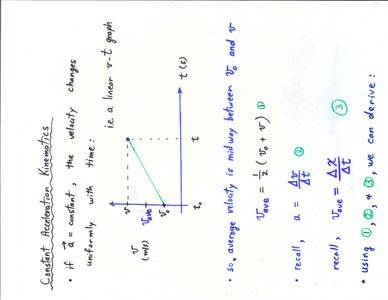 Constant Acceleration Kinematics
• if a⃗ = constant, the velocity changes
uniformly with time:
i.e. a linear v-t graph
v
(m/s)
v
v_ave
v₀
t₀
t
t(s)
• so, average velocity is midway between v₀ and v
v_ave = 1/2 (v₀ + v) ①
• recall, a = Δv/Δt ②
recall, v_ave = Δx/Δt ③
• Using ①, ②, & ③, we can derive: